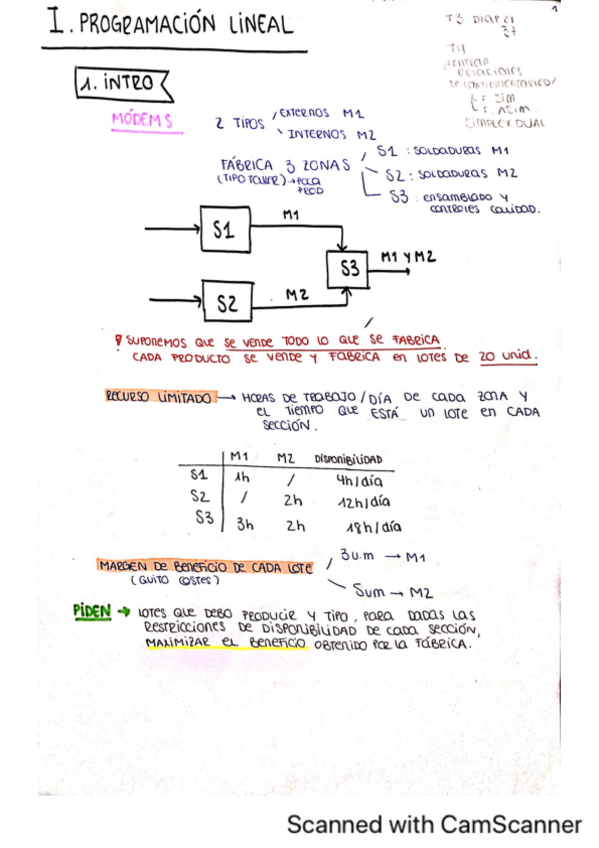 1
I. PROGRAMACIÓN LINEAL
T3 DIAP 21
37
T4
1. INTRO
MÓDEMS
2 TIPOS
EXTERNOS M1
INTERNOS M2
SIMPLEX DUAL
FÁBRICA 3 ZONAS
(TIPO TALLER)
PROD
S1 : SOLDADURAS M1
S2 : SOLDADURAS M2
S3 ENSAMBLADO Y
CONTROLES CALIDAD.
S1
M1
S3
M1 Y M2
S2
M2
SUPONEMOS QUE SE VENDE TODO LO QUE SE FABRICA.
CADA PRODUCTO SE VENDE Y FABRICA EN LOTES DE 20 Unid.
RECURSO LIMITADO → HORAS DE TRABAJO / DÍA DE CADA ZONA Y
EL TIEMPO QUE ESTÁ UN LOTE EN CADA
SECCIÓN.
M1 M2 DISPONIBILIDAD
S1 1h / 4h/día
S2 / 2h 12h/día
S3 3h 2h 18h/día
MARGEN DE BENEFICIO DE CADA LOTE
(QUITO COSTES)
3 u.m → M1
5um → M2
PIDEN → LOTES QUE DEBO PRODUCIR Y TIPO, PARA DADAS LAS
RESTRICCIONES DE DISPONIBILIDAD DE CADA SECCIÓN,
MAXIMIZAR EL BENEFICIO OBTENIDO POR LA FÁBRICA.
Scanned with CamScanner